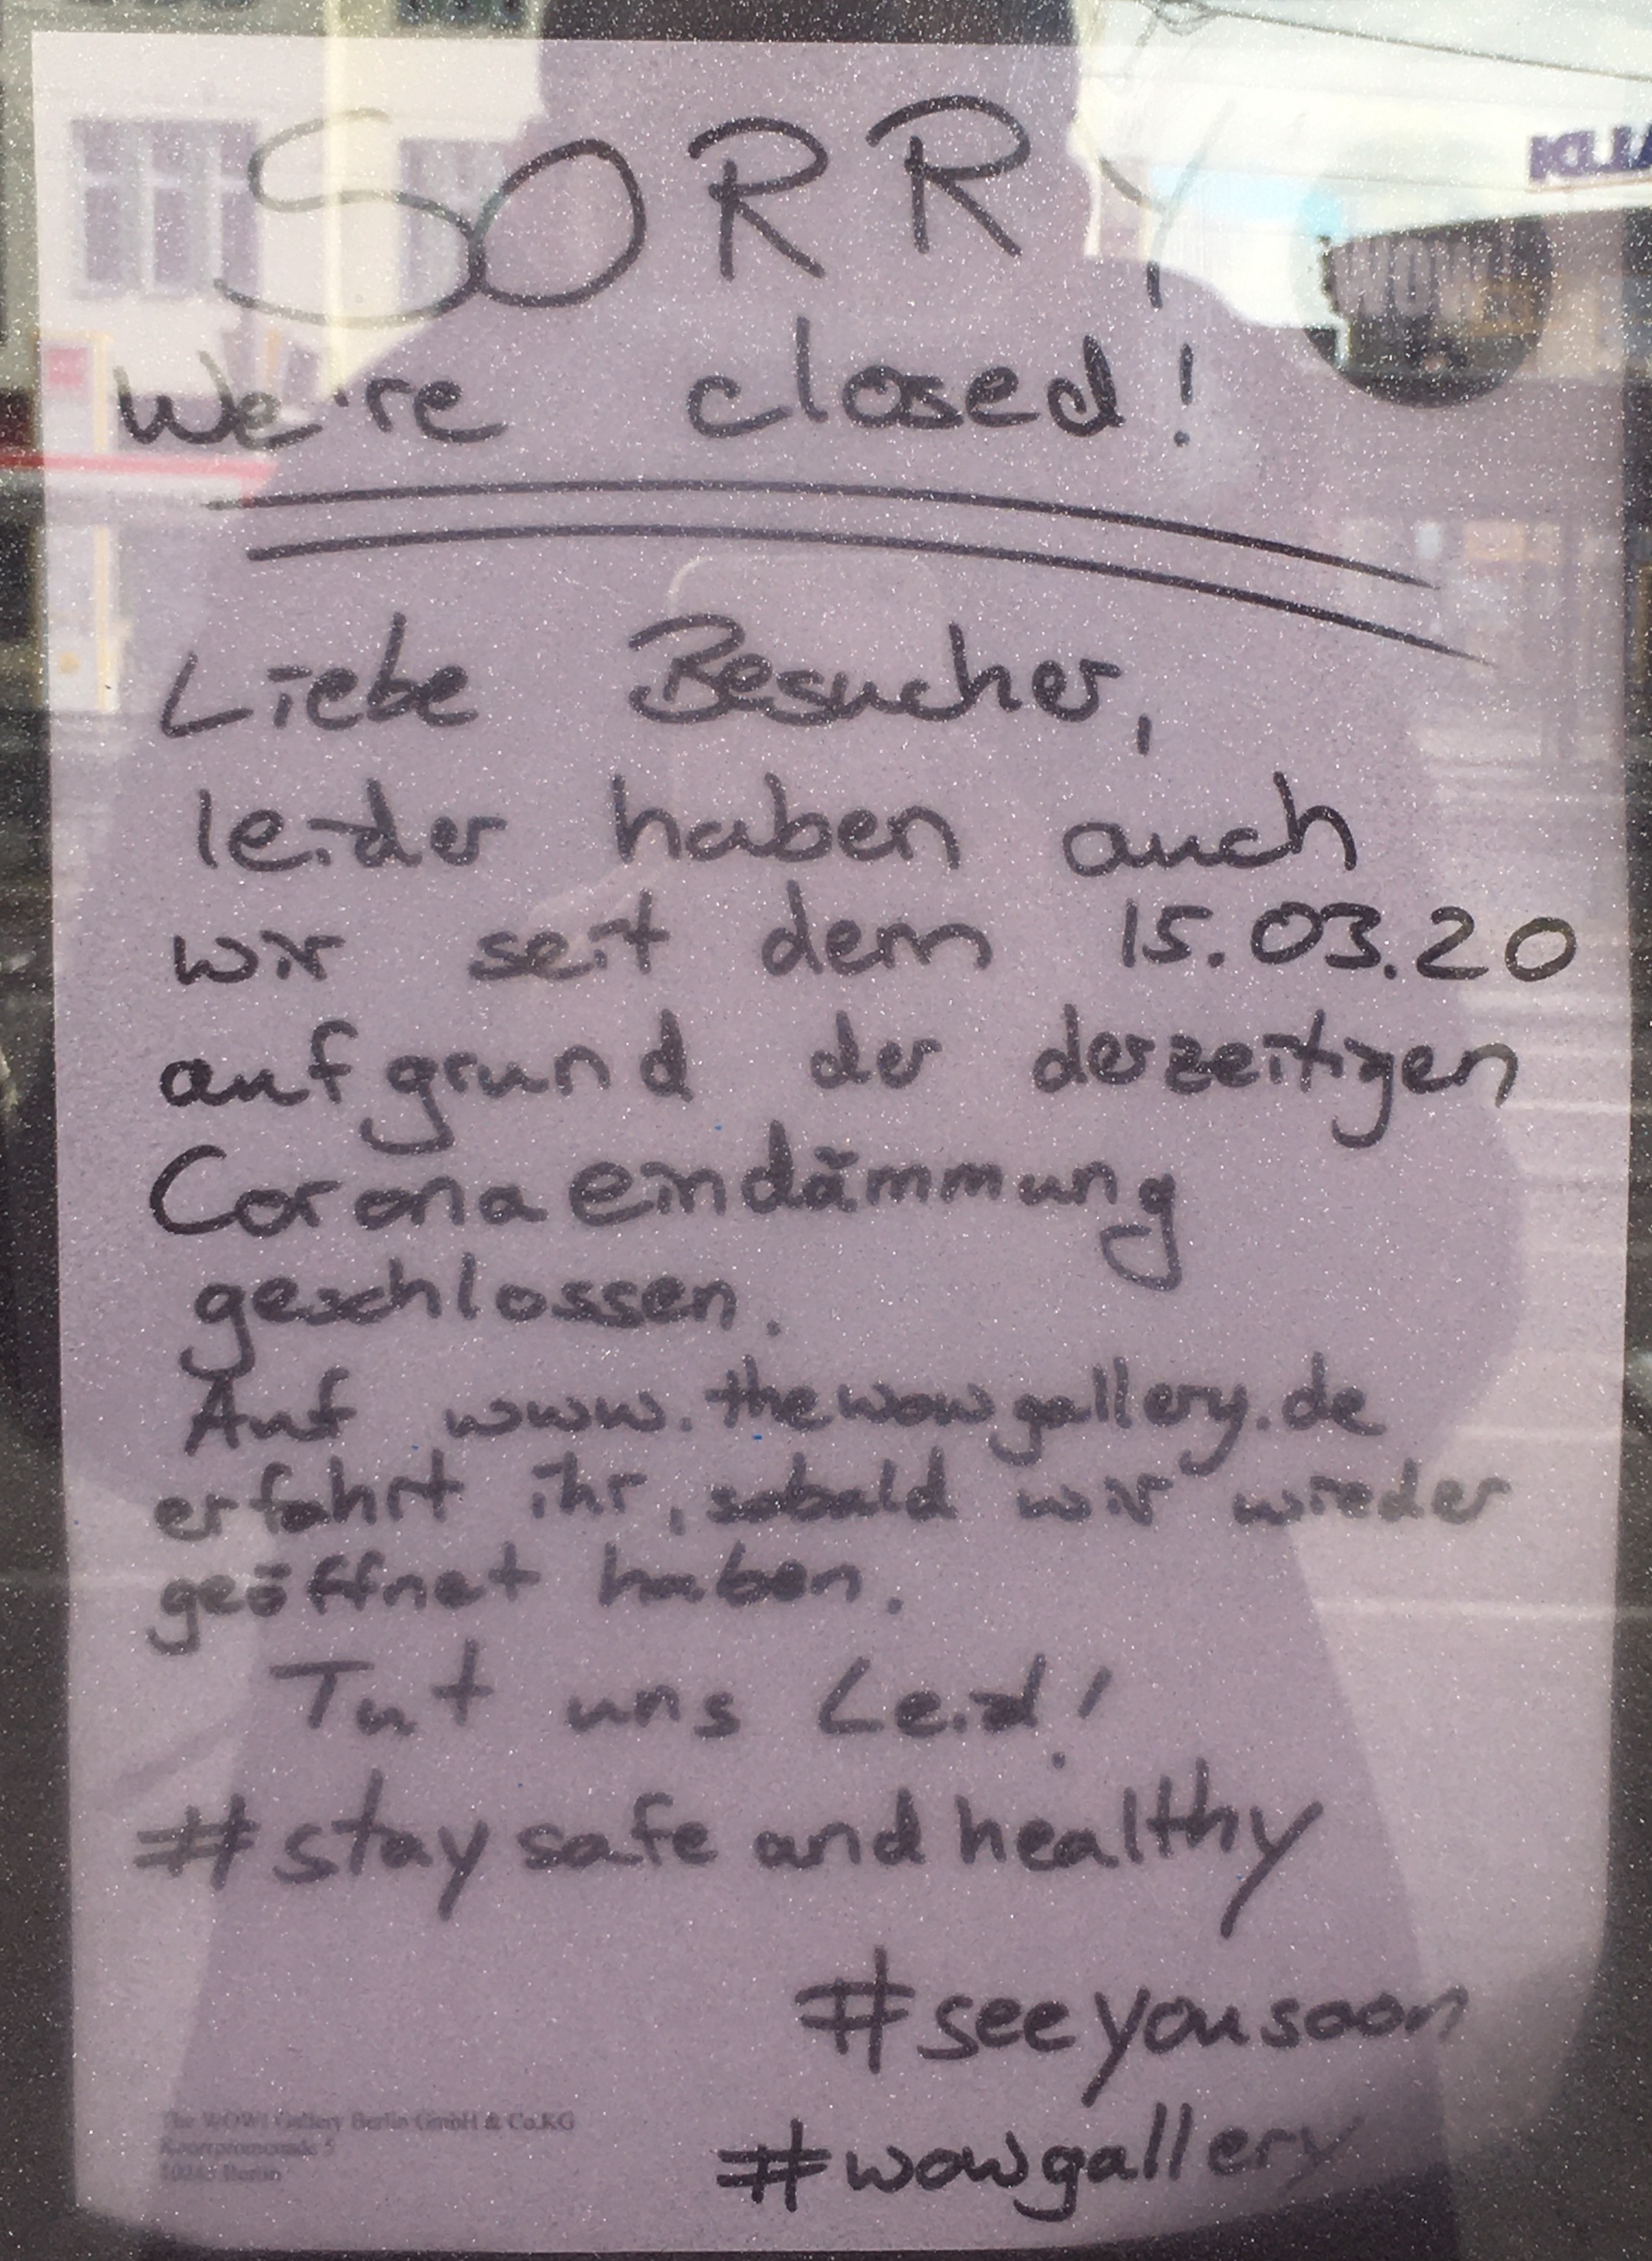 SORRY
We're closed!
KLLA
WOW!
Liebe Besucher,
leider haben auch
wir seit dem 15.03.20
aufgrund der derzeitigen
Coronaeindämmung
geschlossen.
Auf www.thewowgallery.de
erfahrt ihr, sobald wir wieder
geöffnet haben.
Tut uns Leid!
#staysafeandhealthy
#seeyousoon
#wowgallery
The WOW! Gallery Berlin GmbH & Co.KG
5
Berlin